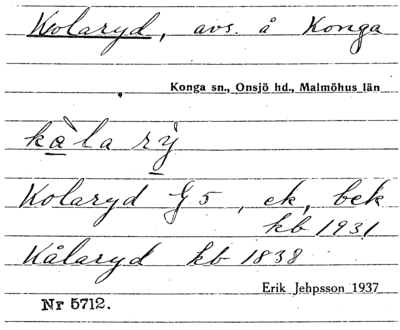 Kolaryd, avs. å Konga
Konga sn., Onsjö hd., Malmöhus län
kàla rỳ
Kolaryd G 5, ek, bek
kb 1931
Kålaryd kb 1838
Erik Jehpsson 1937
Nr 5712.